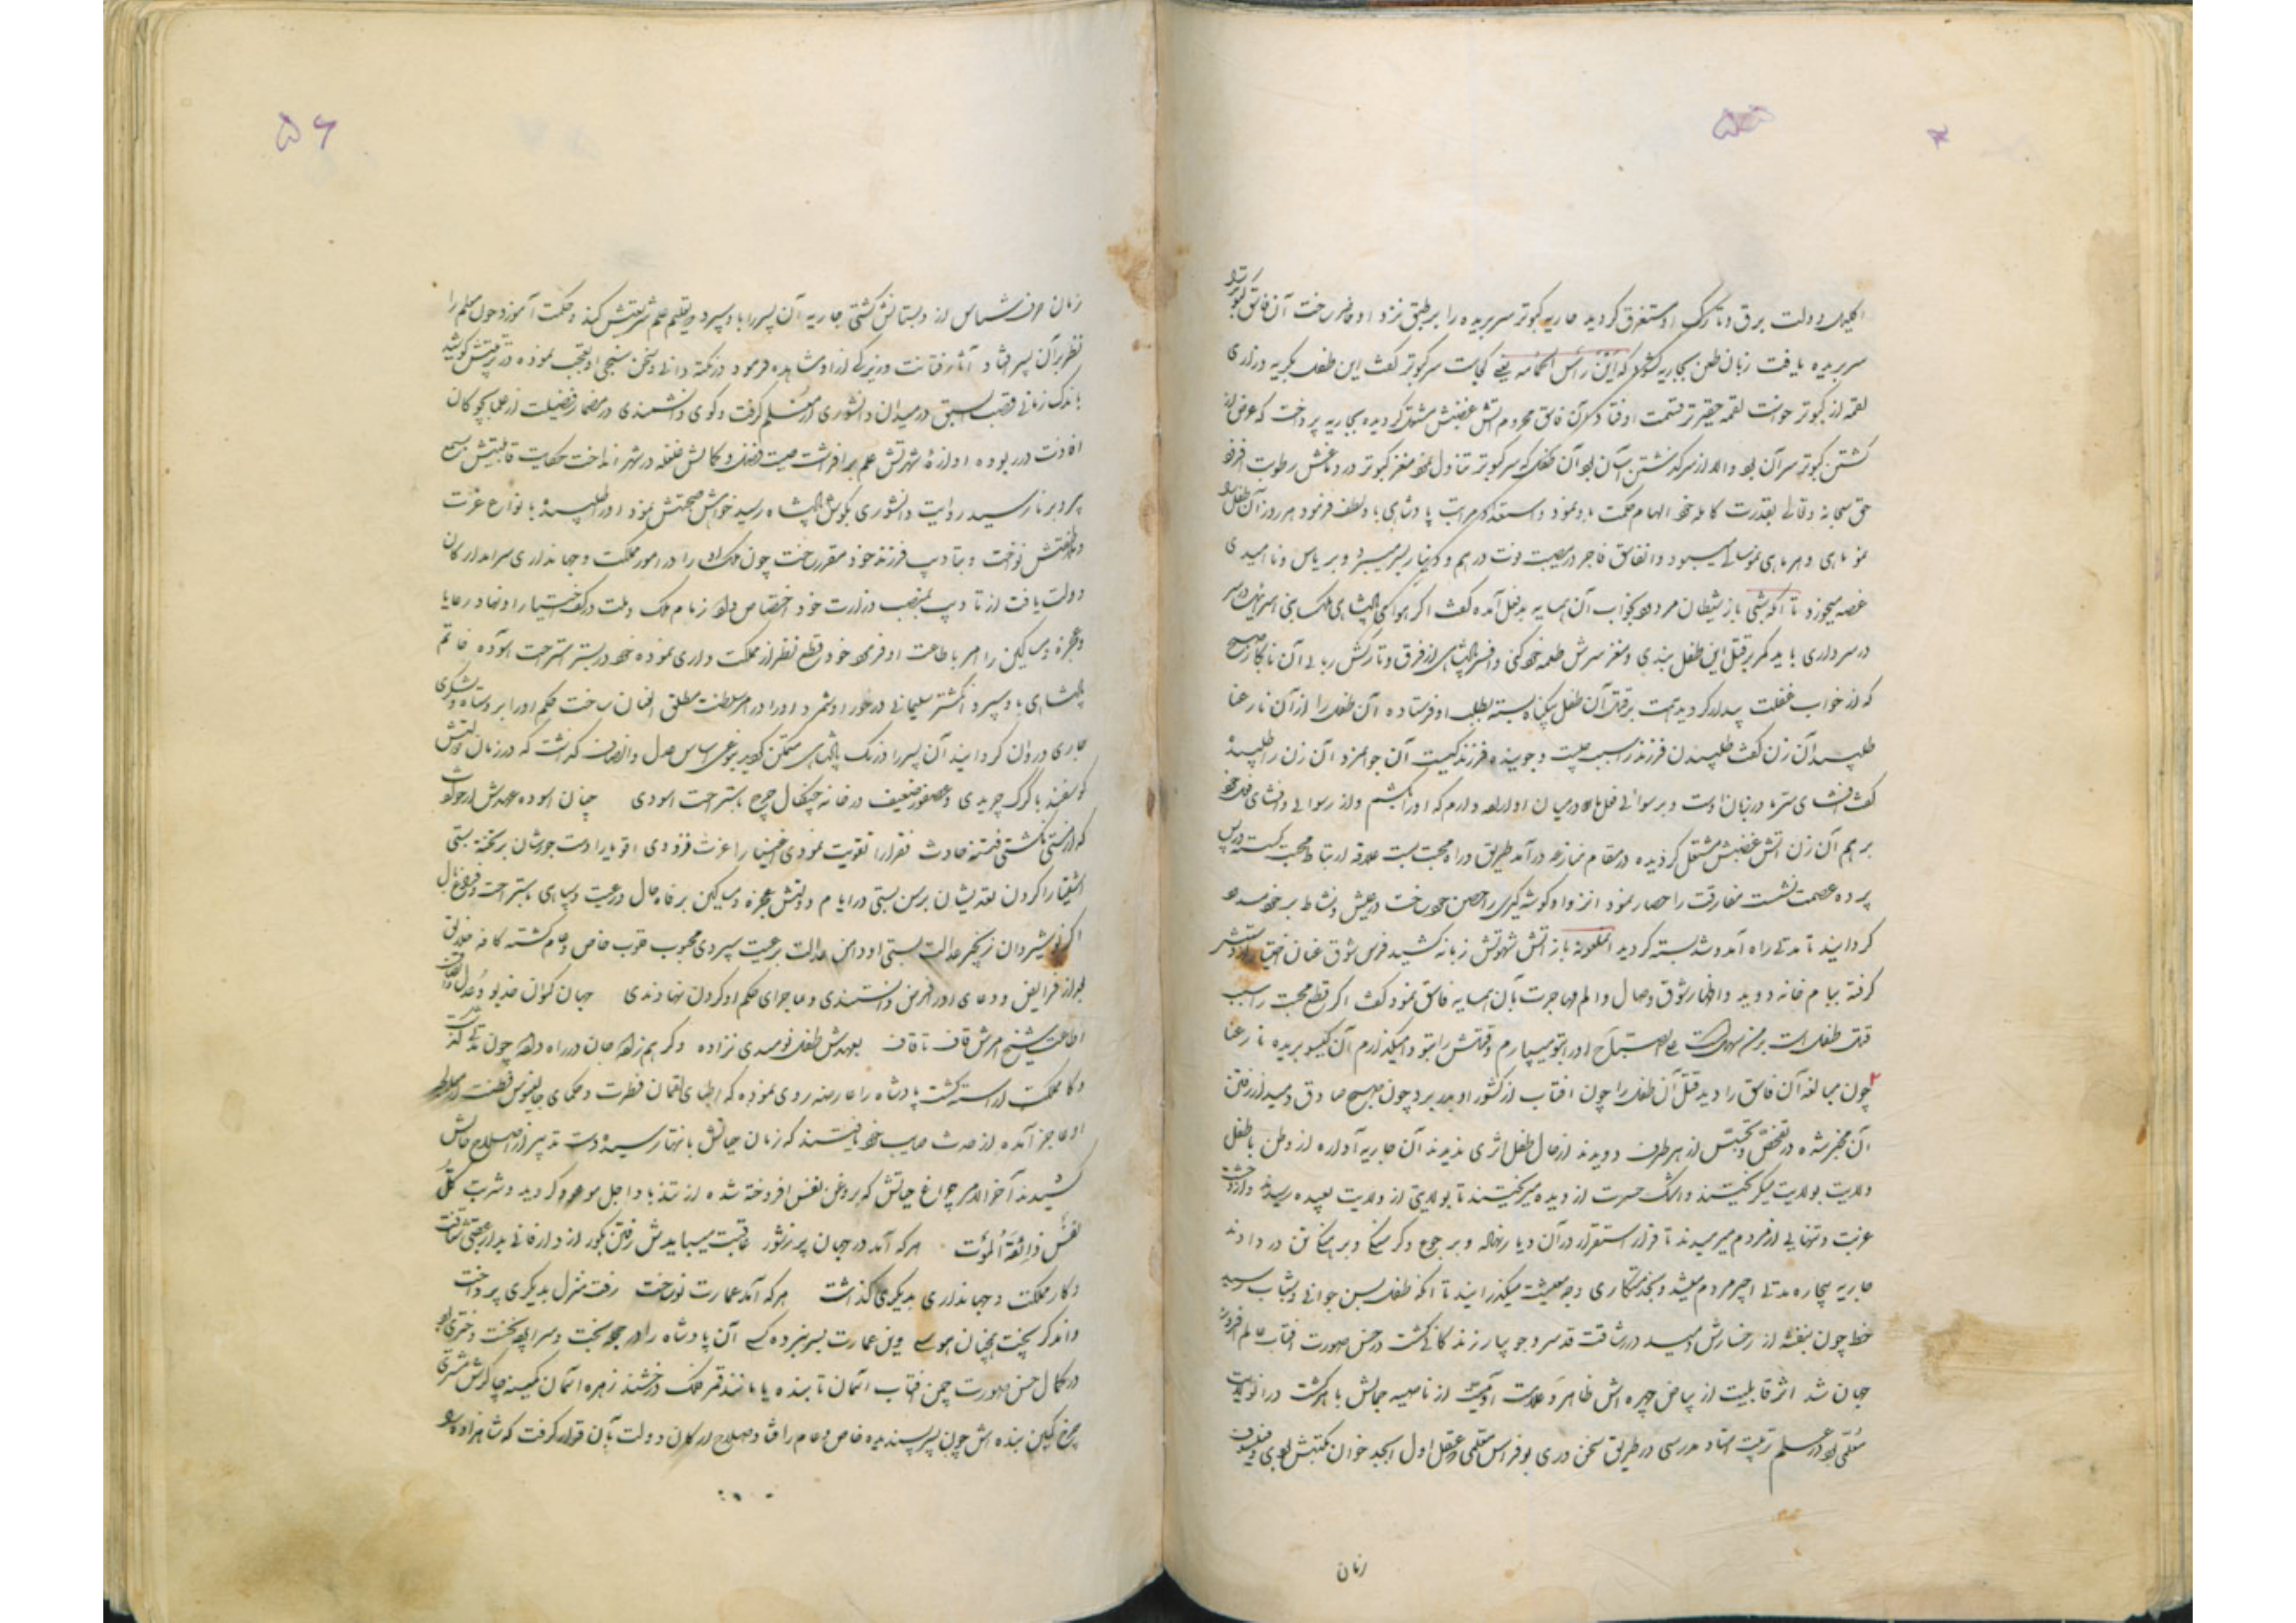 ۵۵
اکلیل دولت برق و تارک او مستغرق گردید جاریه کبوتر سربریده را بر طبق نزد او حاضر ساخت آن فاسق کبوتر را
سربریده یافت زبان طعن بجاریه گشود که این رأس الحمامه یعنی کجاست سر کبوتر گفت این طفل بگریه و زاری
لقمه از کبوتر خواست لقمه حقیرتر قسمت او فتاد آن فاسق محروم آتش غضبش مشتعل گردیده بجاریه پرداخت که غرض از
کشتن کبوتر سر آن بود والا از سر گذشتن آسان بود آن طفل که سر کبوتر تناول نمود مغز کبوتر در دماغش رطوبت افزود
حق سبحانه و تعالی بقدرت کامله خود الهام حکمت باو نمود و استعداد مراتب پادشاهی باو لطف فرمود هر روز آن طفل را
نمو ماهی و هر ماهی نمو سالی میبود و آن فاسق فاجر در مصیبت فوت درهم و دینار بسر میبرد و بر یاس و ناامیدی
غصه میخورد تا آنکه شبی باز شیطان مردود بخواب آن همسایه بدفعل آمده گفت اگر هوای پادشاهی ملک بنی اسرائیل در سر
در سر داری باید کمر بر قتل این طفل بندی و مغز سرش طعمه خود کنی و افسر پادشاهی از فرق و تارکش ربائی آن نابکار صبح
که از خواب غفلت بیدار گردید همت بر قتل آن طفل بیگناه بسته بطلب او فرستاده آن طفل را از آن نارعنا
طلبید آن زن گفت طلبیدن فرزند را سبب چیست و جوینده فرزند کیست آن جوانمرد آن زن را طلبیده
گفت افشای سر ما در زبان اوست و بر سوائی فعل ما در میان او اراده دارم که او را بکشم و از رسوائی و افشای فعل خود
برهم آن زن آتش غضبش مشتعل گردیده در مقام منازعه درآمد طریق و راه محبت بست علاقه ارتباط محبت گسسته در پس
پرده عصمت نشست مفارقت را حصار نمود انزوا و گوشه گیری را حصن خود ساخت در عیش و نشاط بر خود مسدود
گردانید تا مدتی راه آمد و شد بسته گردید الملعونه باز آتش شهوتش زبانه کشید فرس شوق عنان اختیار از دستش
گرفته ببام خانه دوید و اظهار شوق وصال و الم مهاجرت بآن همسایه فاسق نمود گفت اگر قطع محبت را سبب
قتل طفل است بر من سهل است علی الصباح او را بتو میسپارم و قتلش را بتو وامیگذارم آن گیسو بریده نارعنا
چون مبالغه آن فاسق را دید قتل آن طفل را چون آفتاب از کشور او بدر برد چون صبح صادق دمید از رفتن
آن مخبر شده در تفحص و تجسس از هر طرف دویدند از حال طفل اثری ندیدند آن جاریه آواره از وطن با طفل
ولایت بولایت میگریختند و اشک حسرت از دیده میریختند تا بولایتی از ولایت بعیده رسیدند و از وحشت
غربت و تنهایی از مردم میرمیدند تا قرار استقرار در آن دیار نهاده و بر جوع و گرسنگی و برهنگی تن در دادند
جاریه بیچاره مدتی اجیر مردم میشد و بخدمتکاری وجه معیشت میگذرانید تا آنکه طفل بسن جوانی و شباب رسید
خط چون بنفشه از رخسارش دمید در رشاقت قد سرو جویبار زندگانی گشت در حسن صورت آفتاب عالم افروز
جهان شد اثر قابلیت از بیاض چهره اش ظاهر و علامت آدمیت از ناصیه جمالش باهر گشت در آن ولایت
معلمی بود در علم تربیت استاد مدرسی در طریق سخن دری بوفراس متعلمی و عقل اول ابجد خوان مکتبش بودی و فیلسوف
زمان
۵۶
زمان حرف شناس از دبستانش گشتی جاریه آن پسر را باو سپرد و بتعلیم علم شریعتش کند و حکمت آموزد چون معلم را
نظر بر آن پسر افتاد آثار فتانت و زیرکی از او مشاهده فرمود از نکته دانی و سخن سنجی او تعجب نموده در تربیتش کوشید
باندک زمانی قصب السبق در میدان دانشوری از معلم گرفت و گوی دانشمندی در مضمار فضیلت از علما بچوگان
افادت در ربوده آوازه شهرتش علم برافراشت صیت فضل و کمالش غلغله در شهر انداخت حکایت قابلیتش بسمع
پیر و برنا رسید روایت دانشوری بگوش پادشاه رسید خواهش صحبتش نمود او را طلبیده بانواع عزت
و عاطفتش نواخت و بتادیب فرزند خود مقرر ساخت چون ملک او را در امور مملکت و جهانداری سرآمد ارکان
دولت یافت از تادیب بمنصب وزارت خود اختصاص داد زمام ملک و ملت در کف اختیار او نهاد رعایا
و عجزه و مساکین را امر باطاعت او فرمود خود قطع نظر از مملکت داری نموده خود در بستر استراحت آسوده خاتم
پادشاهی باو سپرد انگشتر سلیمانی درخور او شمرد او را در امر سلطنت مطلق العنان ساخت حکم او را بر وسپاه و لشکری
جاری و روان گردانید آن پسر را در ملک پادشاهی متمکن گردید بنوعی اساس عدل و انصاف گذاشت که در زمان دولتش
گوسفند با گرگ چریدی و عصفور ضعیف در خانه چنگال چرغ باستراحت آسودی چنان آسوده عهدش از حوادث
که از مستی نگشتی فتنه حادث فقرا را تقویت نمودی اغنیا را عزت فزودی اقویا را دست جورشان بر تخته بستی
اشقیا را گردن تعدیشان برسن بستی در ایام دولتش عجزه و مساکین بر فاه حال و رعیت و سپاهی باستراحت و فراغ بال
اگر نوشیروان زنجیر عدالت بستی او دامن عدالت برعیت سپردی محبوب قلوب خاص و عام گشته کافه خلایق
بعد از فرایض دعای او را فرض دانستندی و ماجرای حکم او گردن نهادندی جهان کنوان خدیو و عدل
اطاعت شیخ امرش قاف تا قاف بعهدش طفل نومیدی نزاده و گر هم زاده جان در راه داده چون مدتی گذشت
و کار مملکت آراسته گشت پادشاه را عارضه روی نموده که اطبای لقمان فطرت و حکمای جالینوس فطنت از معالجه
او عاجز آمده از حدت صایب خود یافتند که زمان حیاتش بانتها رسیده دست تدبیر از اصلاح حالش
کشیدند آخر الامر چراغ حیاتش که بروغن نفس افروخته شده از تندباد اجل موعود گردید و شربت کل
نفس ذائقة الموت هر که آمد در جهان پر ز شور عاقبت میبایدش رفتن بگور از دار فانی بدار عقبی شتافت
و کار مملکت و جهانداری بدیگری گذاشت هر که آمد عمارت نو ساخت رفت منزل بدیگری پرداخت
واندگر پخت همچنان هوسی وین عمارت بسر نبرده کسی آن پادشاه را در حجره بخت و سراپرده تخت دختری بود
در کمال حسن صورت چون آفتاب آسمان تابنده یا مانند قمر فلک درخشنده زهره آسمان کمینه چاکرش مشتری
چرخ کمین بنده اش چون پسر پسندیده خاص و عام را فتاد و صلاح ارکان دولت بآن قرار گرفت که شاهزاده را